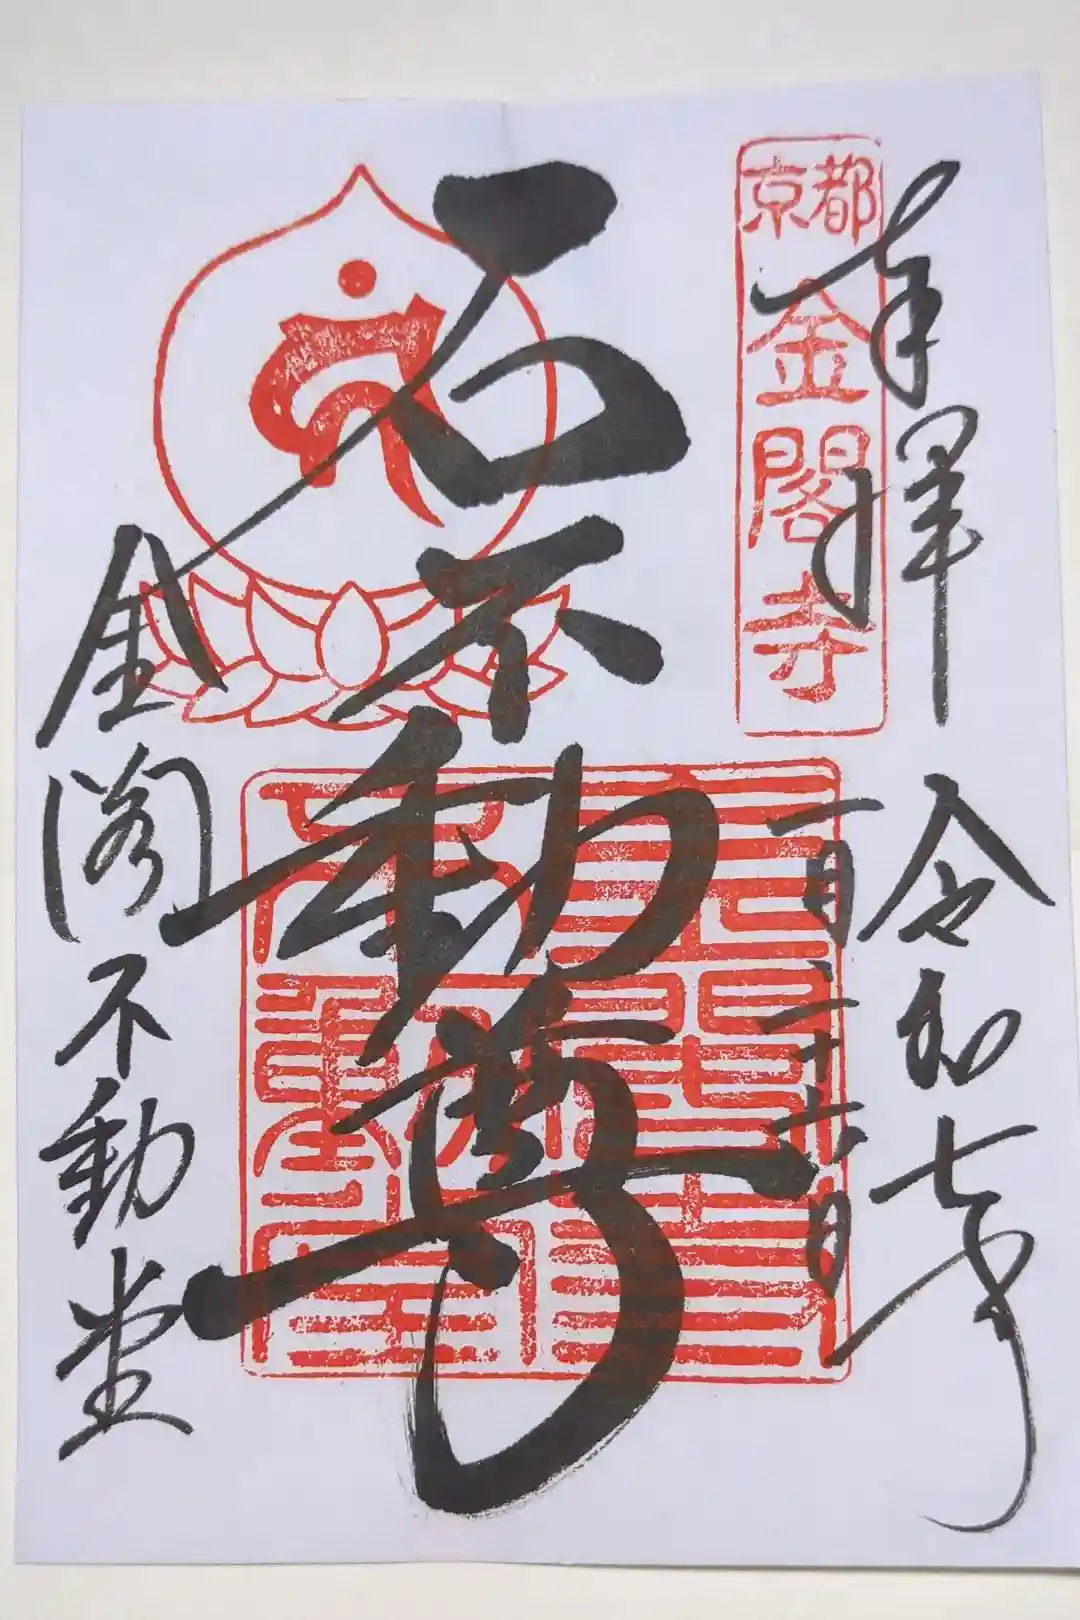 奉拝 令和七年
一月二十六日
京都
金閣寺
石不動尊
金閣不動堂